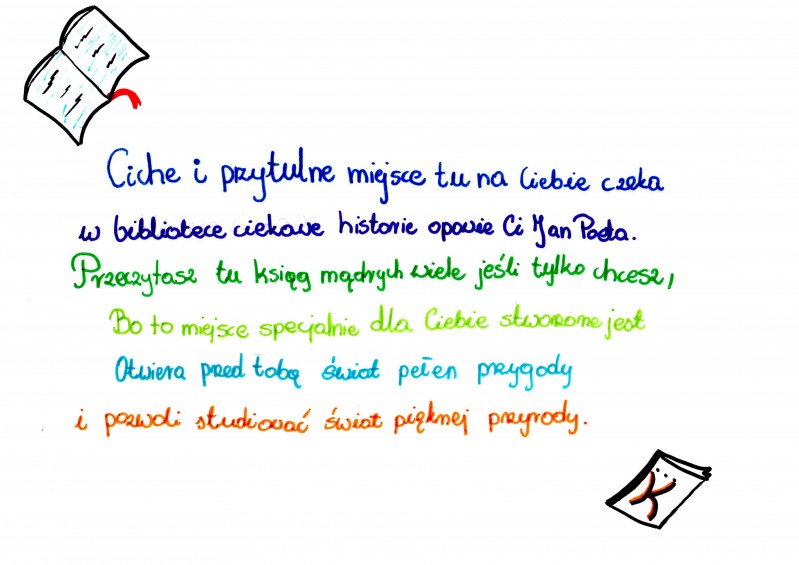 Ciche i przytulne miejsce tu na Ciebie czeka
w bibliotece ciekawe historie opowie Ci Jan Poeta.
Przeczytasz tu ksiąg mądrych wiele jeśli tylko chcesz,
Bo to miejsce specjalnie dla Ciebie stworzone jest
Otwiera przed tobą świat pełen przygody
i pozwoli studiować świat pięknej przyrody.
K